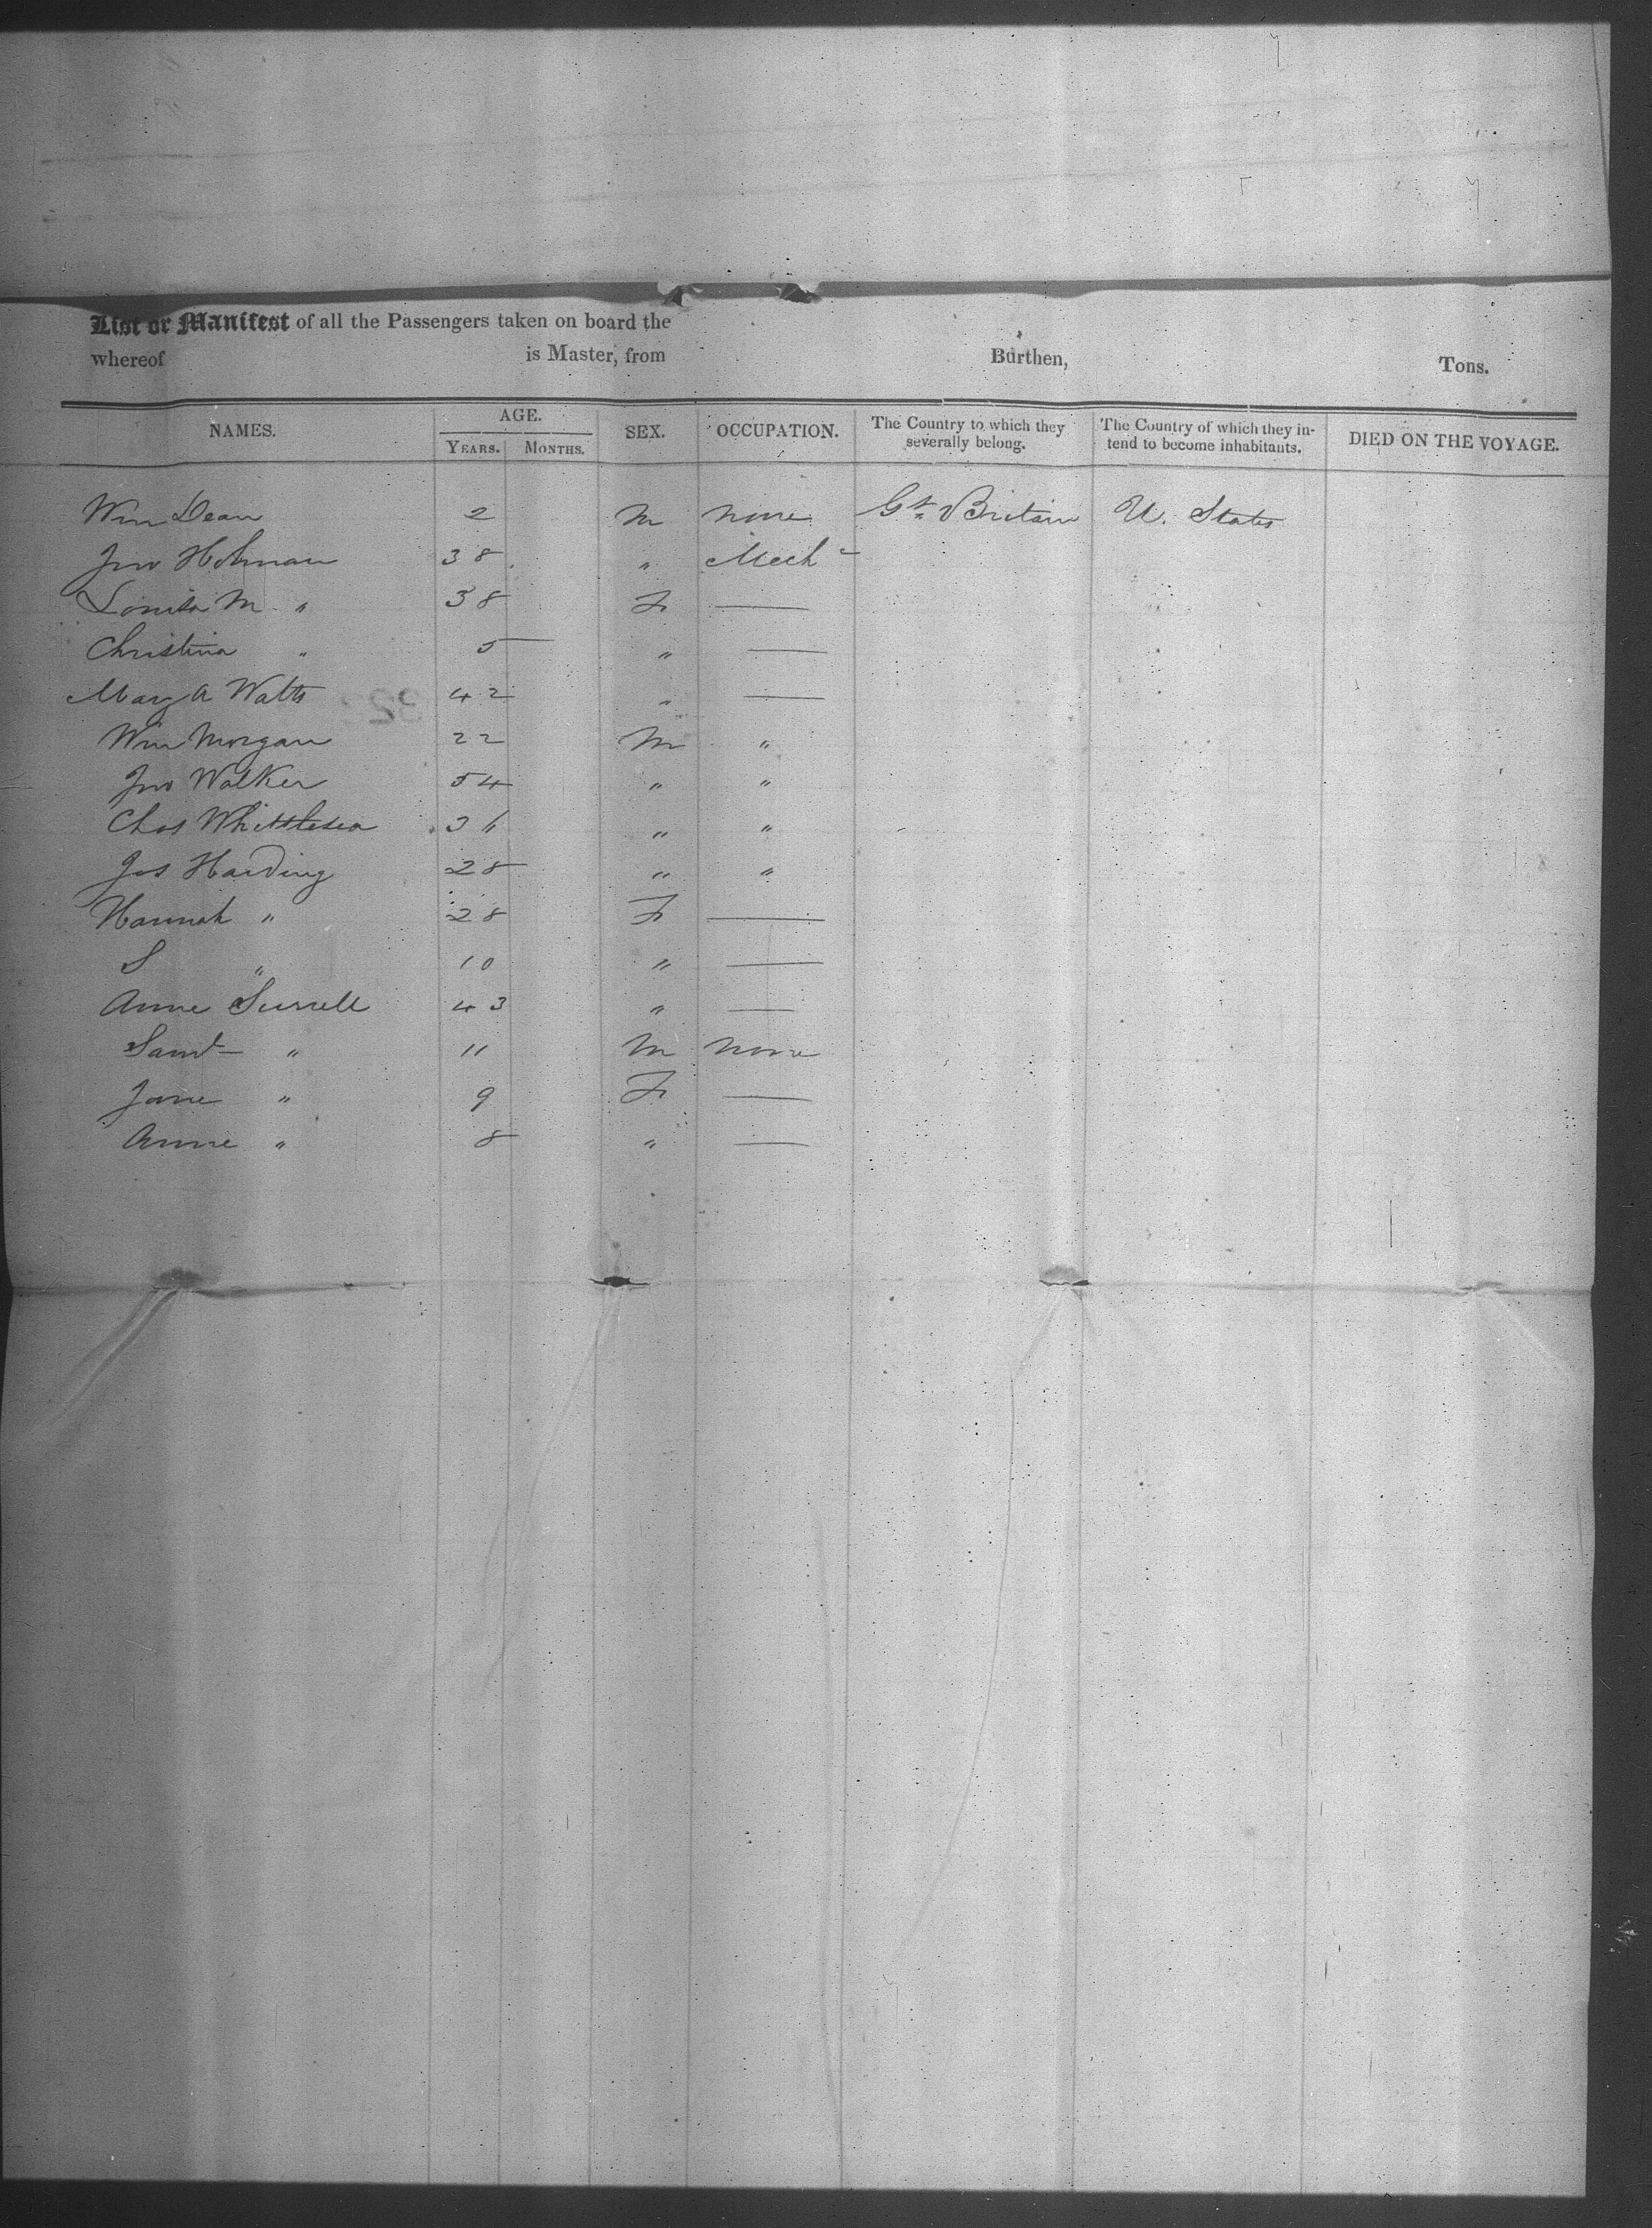 List or Manifest of all the Passengers taken on board the
whereof is Master, from Burthen, Tons.
NAMES. AGE. YEARS. MONTHS. SEX. OCCUPATION. The Country to which they severally belong. The Country of which they intend to become inhabitants. DIED ON THE VOYAGE.
Wm Dean 2 M none Gt. Britain U. States
Jno Holman 38 " Mech
Louisa M " 38 F —
Christina " 5 " —
Mary A Watts 42 " —
Wm Morgan 22 M "
Jno Walker 54 " "
Chas Whittlesea 36 " "
Jos Harding 28 " "
Hannah " 28 F —
S " 10 " —
Anne 43 " —
Saml " 11 M none
Jane " 9 F —
Anne " 8 " —